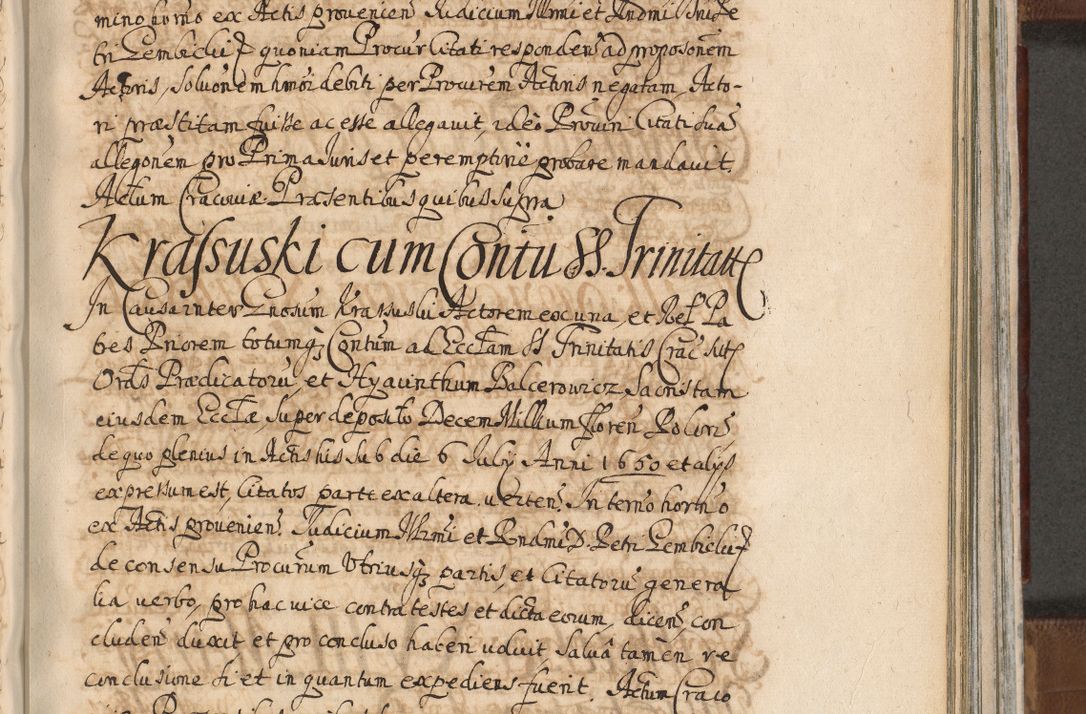 mino horno ex Actis provenien Judicium Illmi et Rndmi D̃ni Pe
tri Gembicki quoniam Procur Citati responden ad proposonem
Actoris, soluonem hmoi debiti per Procurem Actoris negatam, Acto-
ri præstitam fuisse ac esse allegavit, ideo Procuri Citati sua
allegonem pro Prima Juris et peremptorie probare mandavit.
Actum Cracoviæ Præsentibus quibus supra
Krassuski cum Contu SS. Trinitatt
In Causa inter Gnosum Krassuski Actorem ex una, et Rel Pa
tres Priorem totumq Contum ad Ecclam SS Trinitatis Crac sitt
Ordis Prædicatoru, et Hyacinthum Balcerowicz Sacristam
eiusdem Ecclæ, super deposito Decem Millium floren Polin
de quo plenius in Actis his sub die 6 July Anni 1650 et alys
expressum est, Citatos parte ex altera verten. In terno horno
ex Actis provenien. Judicium Illmi et Rndmi D. Petri Gembicki
de consensu Procurum Utriusq partis, et Citatoru genera
lia verbo, pro hac vice contra testes et dicta eorum, dicen, con
cluden duxit et pro concluso haberi voluit salva tamen re
conclusione si et in quantum expediens fuerit. Actum Craco